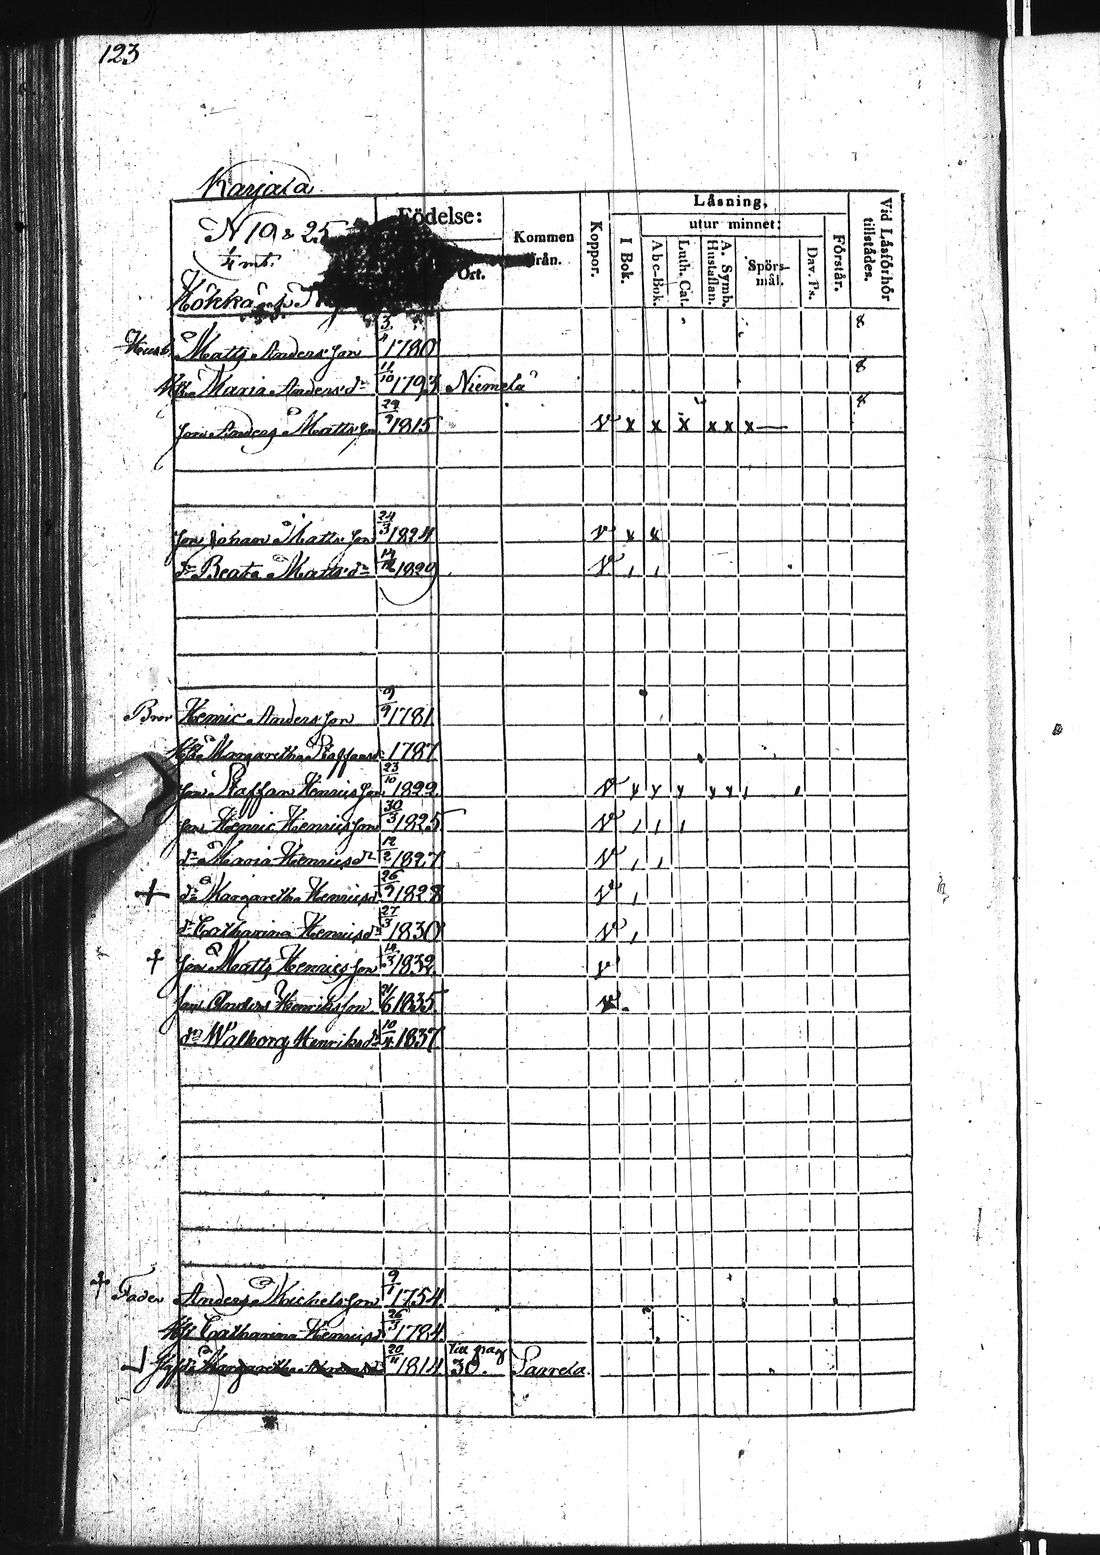 123
Karjala
N 19 & 25
1/4 mt.
Födelse:
Ort.
Kommen från.
Koppor.
Låsning,
utur minnet:
I Bok.
Abc-Bok.
Luth. Cat.
Hustaflan.
A. Symb.
Spörs-mål.
Dav. Ps.
Förstår.
Vid Låsförhör tillstådes.
Matts Anders Son 1780 8
Maria Anders dr 11/10 1793 Niemelä 8
Son Anders Matts Son 1815 v x x x x x x 8
Son Johan Matts Son 24/3 1824 v x x
dr Beata Matts dr 1829 v
Bror Henric Anders Son 9/9 1781
Margaretha 1787
Son Staffan Henrics Son 23/10 1822 v
Son Henric Henrics Son 30/3 1825 v
dr Maria Henrics dr 12/2 1827 v
+ dr Margaretha Henrics 26/9 1828 v
dr Catharina Henrics dr 27/3 1830 v
+ Son Matts Henrics Son 1832 v
Son Anders Henriks Son 1835 v
dr Walborg Henriks dr 10/4 1837
+ Fader Anders Michels Son 9/1 1754
Catharina Henrics 26/3 1784
Margaretha 20/11 1814 till pag 30.